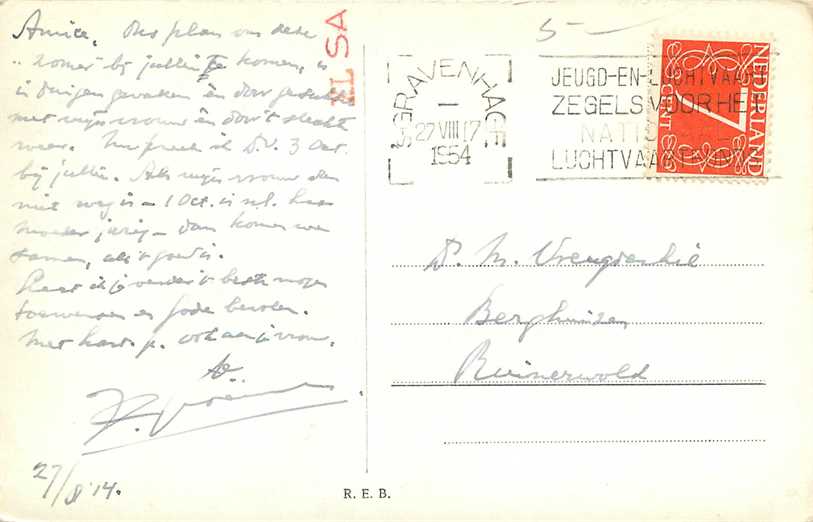 Amice, Ons plan om deze
zomer bij jullie te komen, is
in duigen gevallen en door
met mijn vrouw en don't slechte
weer. Nu preek ik D.V. 3 Oct.
bij jullie. Als mijn vrouw dan
niet weg is - 1 Oct. is n.l. haar
moeder jarig - dan komen we
samen, als 't goed is.
Laat ik je verder 't beste mogen
toewensen en Gode bevolen.
Met hart. gr. ook aan je vrouw.
27/8 '14.
NL SA
'S GRAVENHAGE
27 VIII 17
1954
5-
JEUGD-EN-LUCHTVAART
ZEGELS VOOR HET
NATIO
LUCHTVAARTFONDS
NEDERLAND
7
CENT
Ds. M. Vreugdenhil
Berghuizen
Ruinerwold
R. E. B.